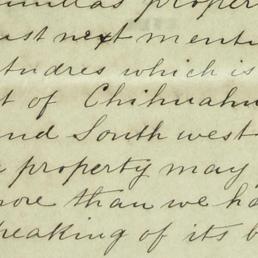 property
just next mentu
tudres which is
t of Chihuahu
and South west
property may
more than we ha
peaking of its b